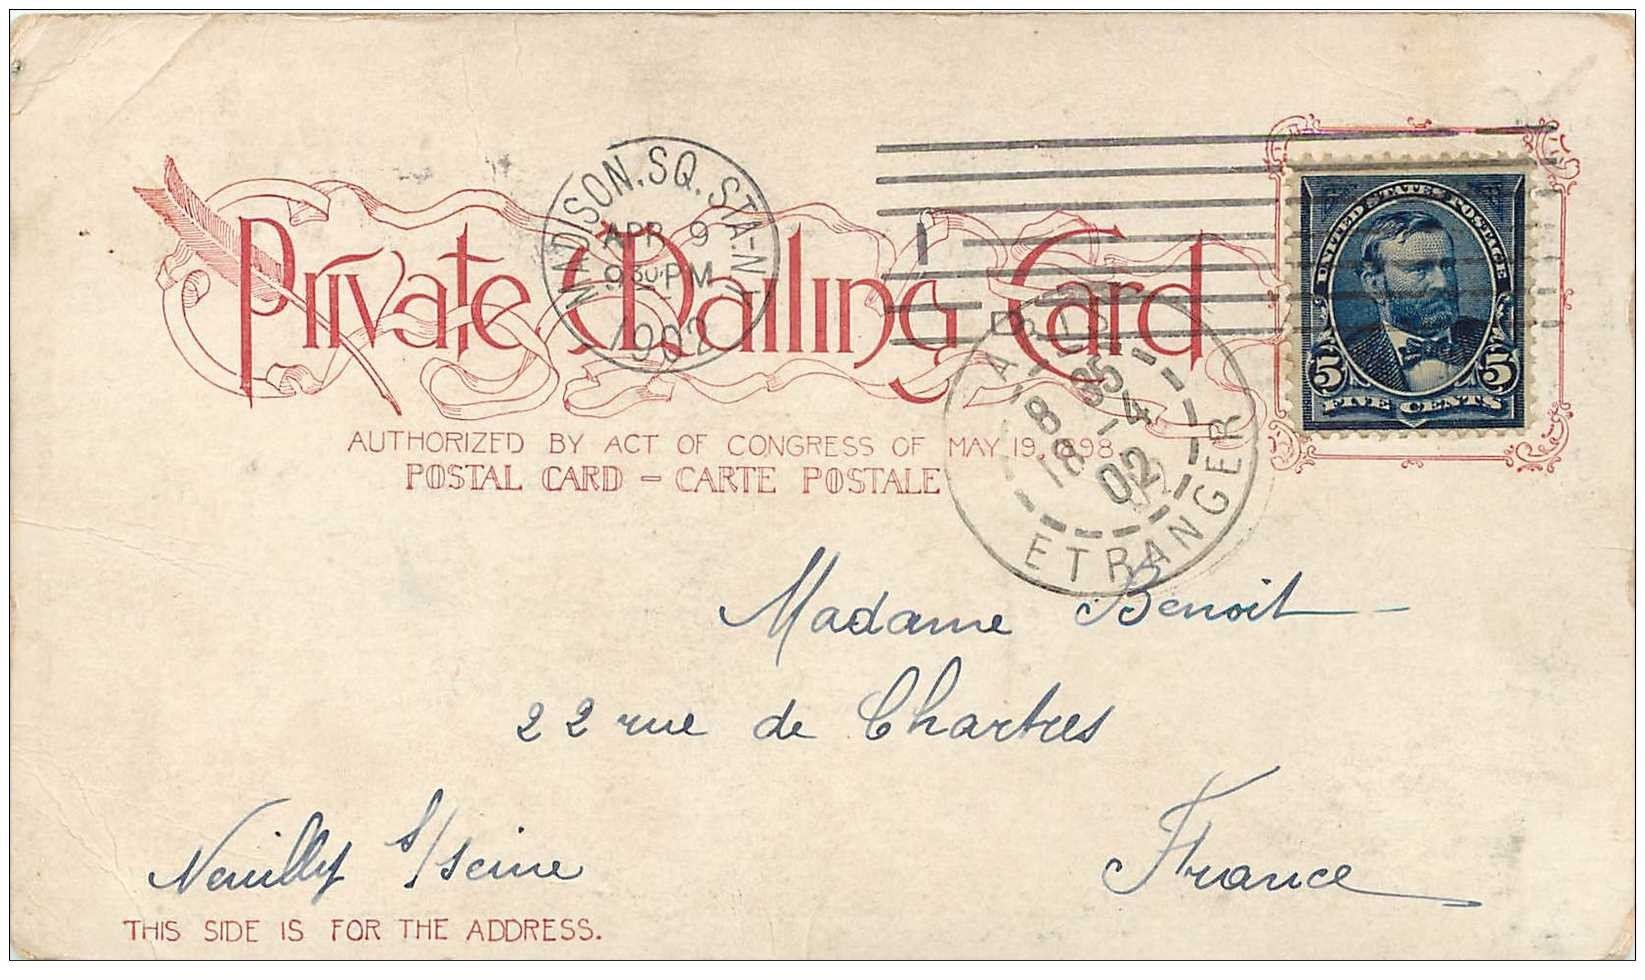 Private Mailing Card
AUTHORIZED BY ACT OF CONGRESS OF MAY 19, 1898.
POSTAL CARD – CARTE POSTALE
MADISON. SQ. STA-N.Y.
APR 9
930 PM
1902
UNITED STATES POSTAGE
5 5
FIVE CENTS
PARIS
8 35
18 - 4
02
ETRANGER
Madame Benoit
22 rue de Chartres
Neuilly s/seine
France
THIS SIDE IS FOR THE ADDRESS.